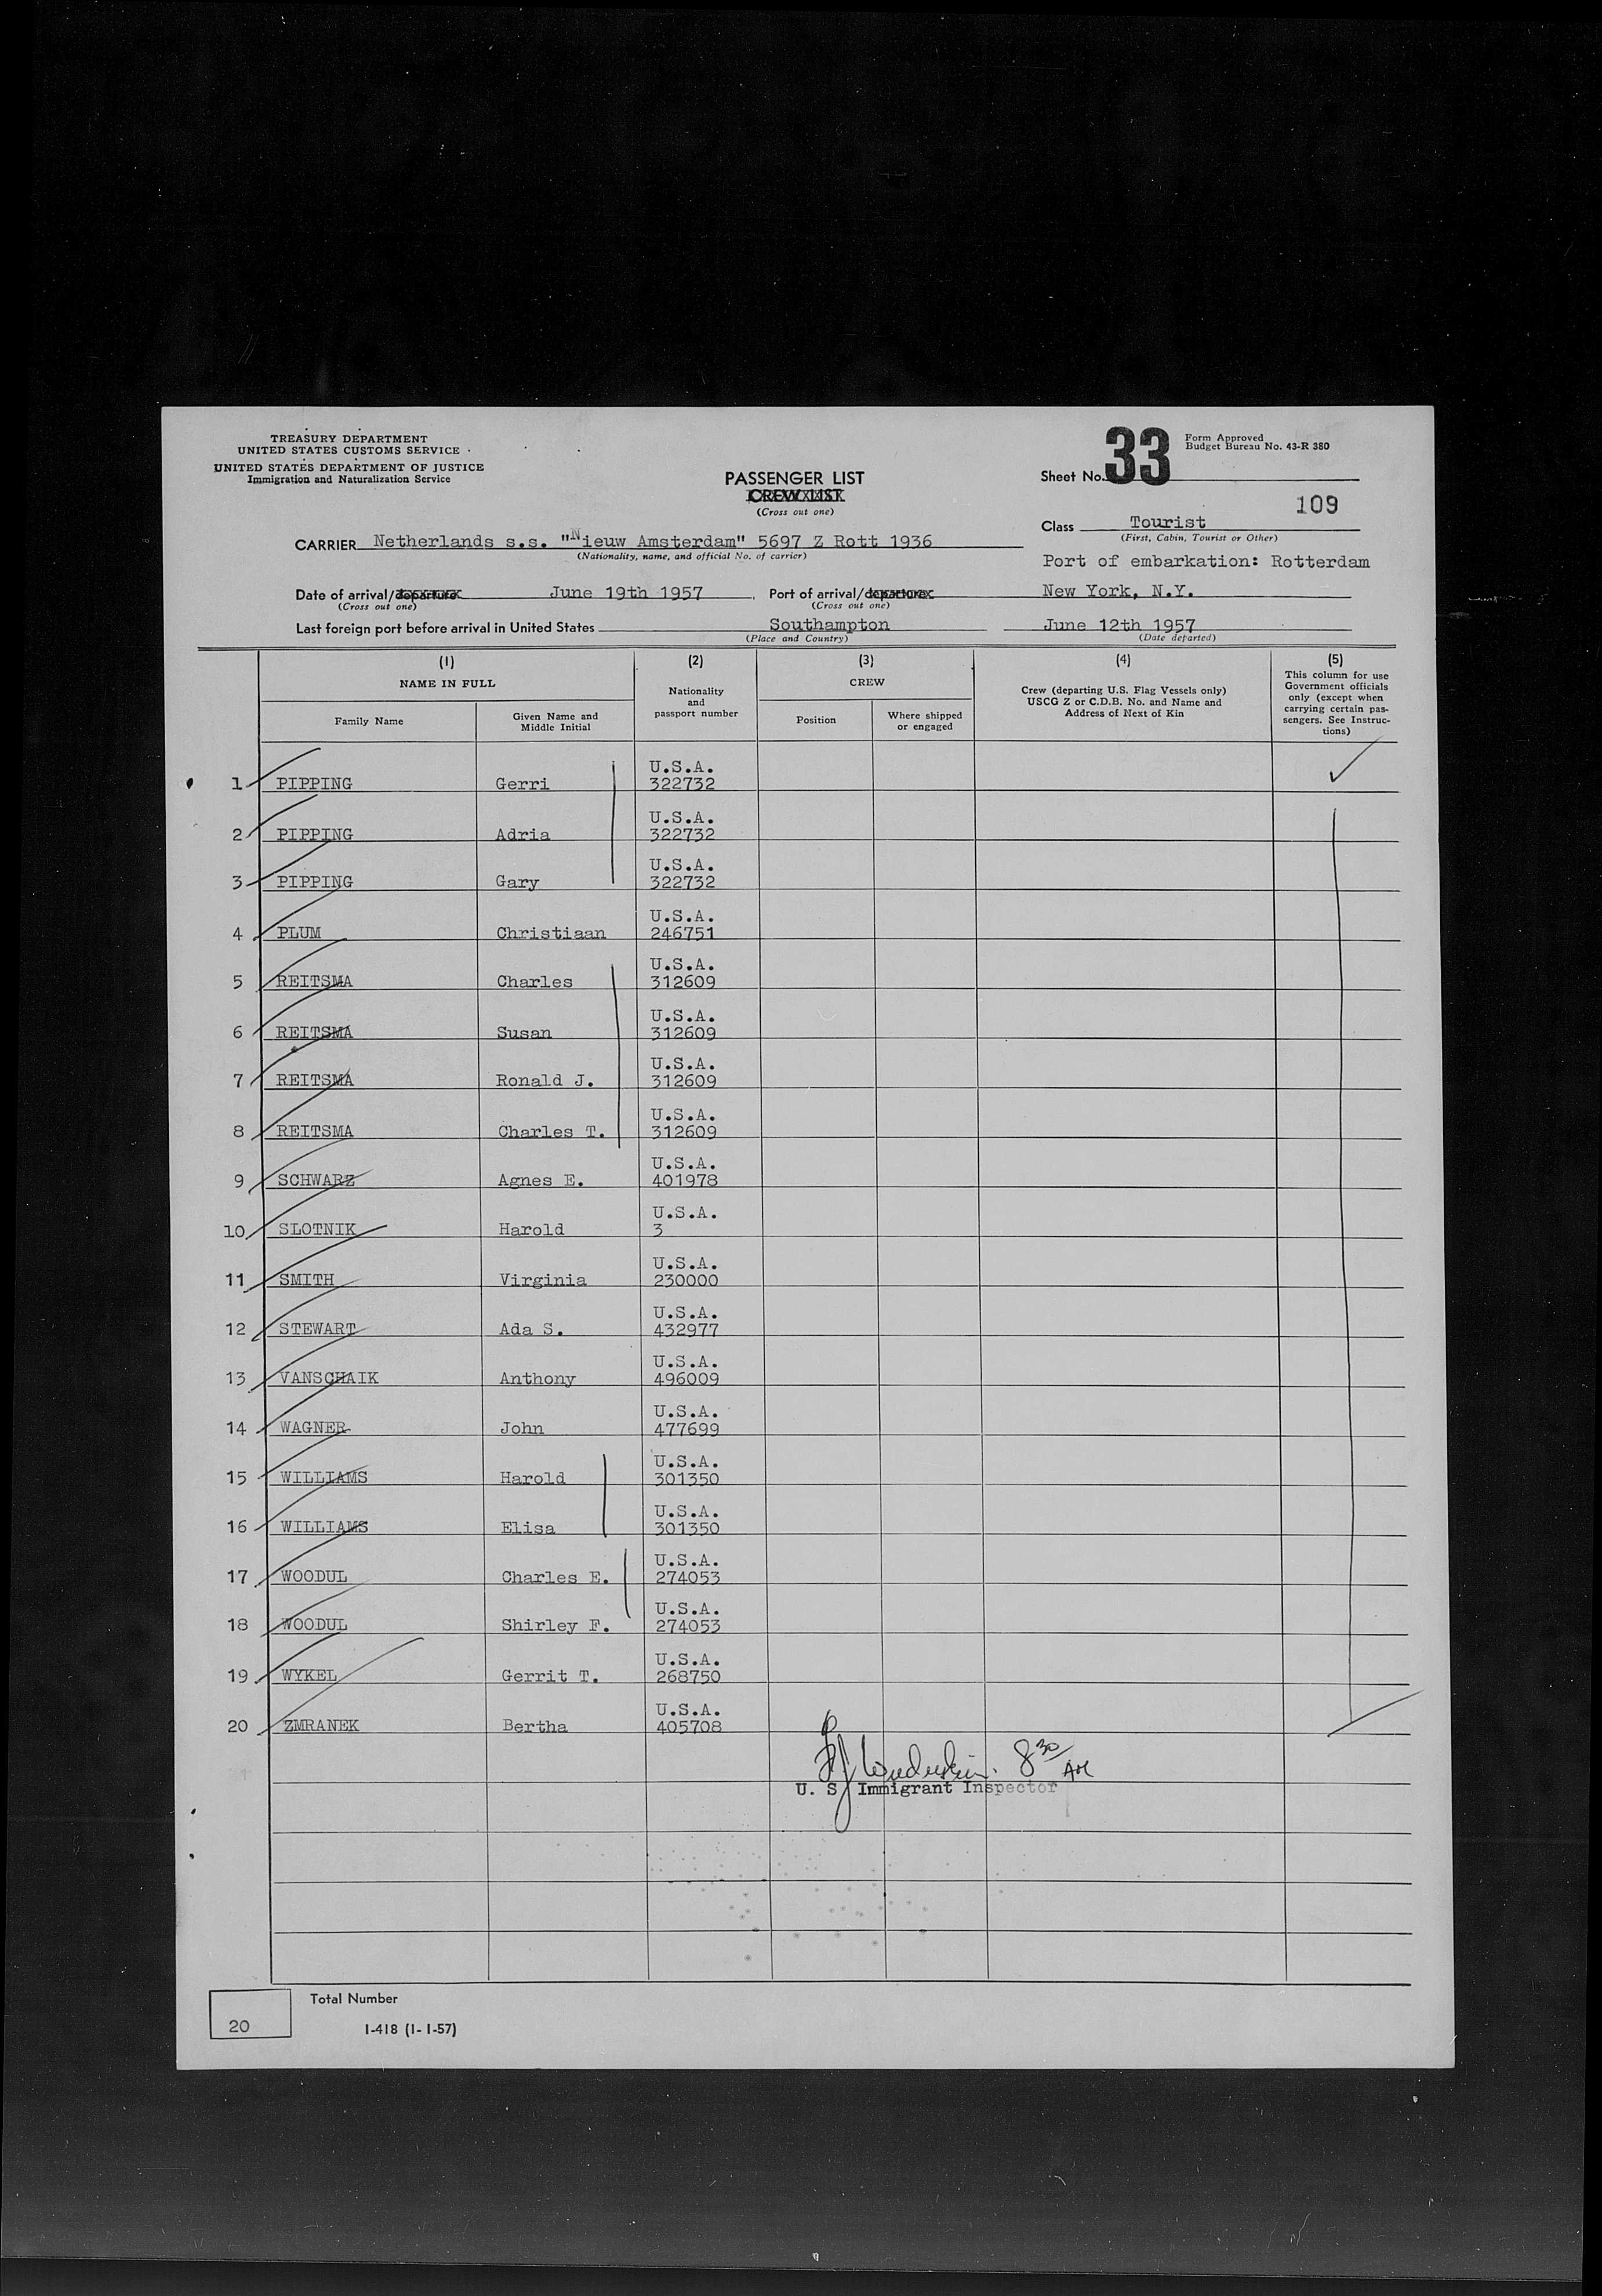 TREASURY DEPARTMENT
UNITED STATES CUSTOMS SERVICE
UNITED STATES DEPARTMENT OF JUSTICE
Immigration and Naturalization Service
PASSENGER LIST
CREW LIST
(Cross out one)
Sheet No. 33
Form Approved
Budget Bureau No. 43-R 380
109
Class Tourist
(First, Cabin, Tourist or Other)
CARRIER Netherlands s.s. "Nieuw Amsterdam" 5697 Z Rott 1936
(Nationality, name, and official No. of carrier)
Port of embarkation: Rotterdam
Date of arrival/departure June 19th 1957, Port of arrival/departure New York, N.Y.
(Cross out one) (Cross out one)
Last foreign port before arrival in United States Southampton June 12th 1957
(Place and Country) (Date departed)
(1) (2) (3) (4) (5)
NAME IN FULL
Family Name
Given Name and
Middle Initial
Nationality
and
passport number
CREW
Position
Where shipped
or engaged
Crew (departing U.S. Flag Vessels only)
USCG Z or C.D.B. No. and Name and
Address of Next of Kin
This column for use
Government officials
only (except when
carrying certain pas-
sengers. See Instruc-
tions)
U.S.A.
1 PIPPING Gerri 322732
U.S.A.
2 PIPPING Adria 322732
U.S.A.
3 PIPPING Gary 322732
U.S.A.
4 PLUM Christiaan 246751
U.S.A.
5 REITSMA Charles 312609
U.S.A.
6 REITSMA Susan 312609
U.S.A.
7 REITSMA Ronald J. 312609
U.S.A.
8 REITSMA Charles T. 312609
U.S.A.
9 SCHWARZ Agnes E. 401978
U.S.A.
10 SLOTNIK Harold 3
U.S.A.
11 SMITH Virginia 230000
U.S.A.
12 STEWART Ada S. 432977
U.S.A.
13 VANSCHAIK Anthony 496009
U.S.A.
14 WAGNER John 477699
U.S.A.
15 WILLIAMS Harold 301350
U.S.A.
16 WILLIAMS Elisa 301350
U.S.A.
17 WOODUL Charles E. 274053
U.S.A.
18 WOODUL Shirley F. 274053
U.S.A.
19 WYKEL Gerrit T. 268750
U.S.A.
20 ZMRANEK Bertha 405708
8 30 AM
U. S. Immigrant Inspector
Total Number
20
I-418 (1-1-57)